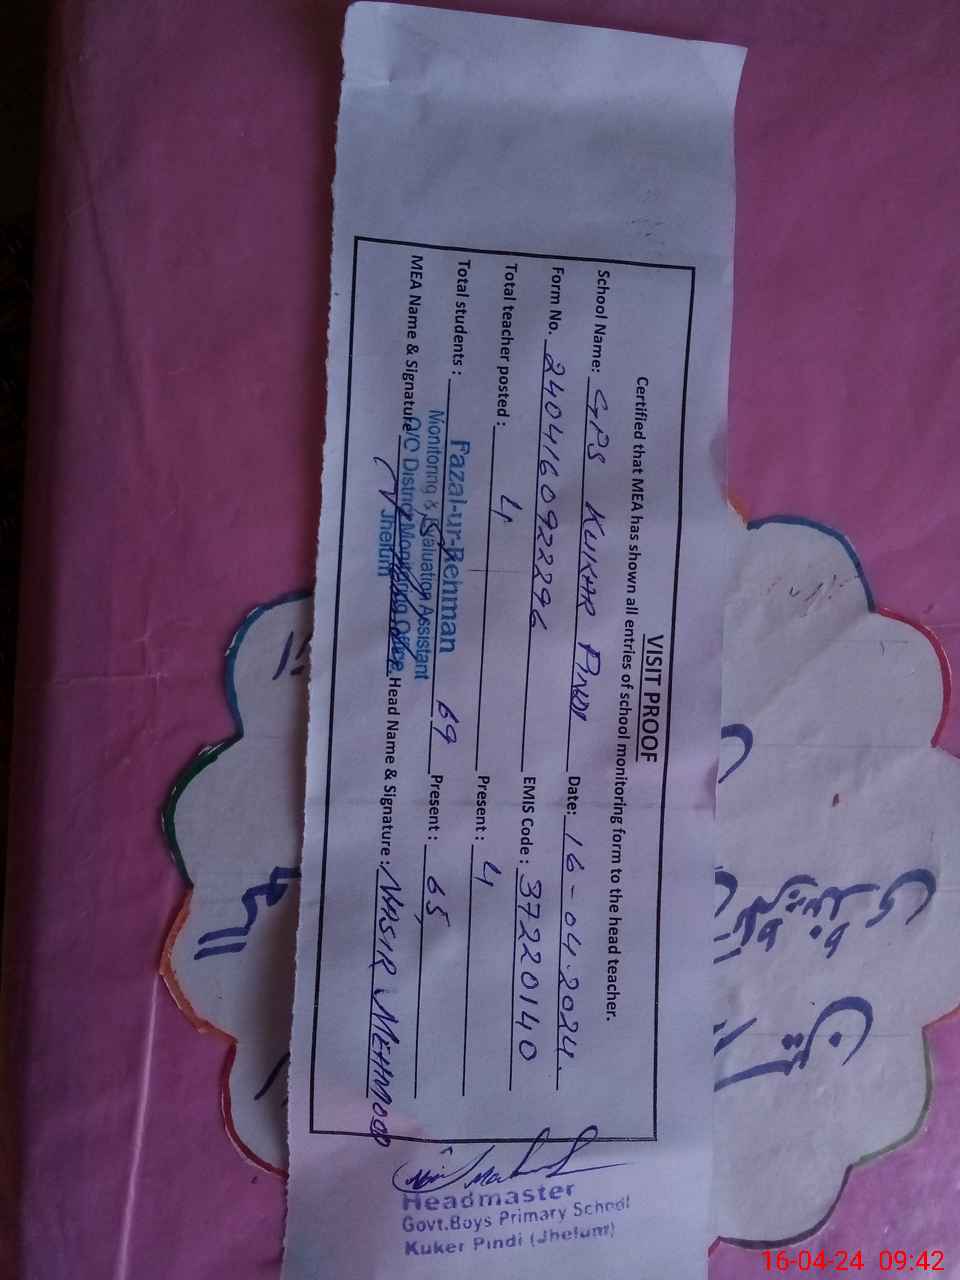 VISIT PROOF
Certified that MEA has shown all entries of school monitoring form to the head teacher.
School Name: GPS KUKHAR PINDI Date: 16-04.2024.
Form No. 240416092296 EMIS Code : 37220140
Total teacher posted : 4 Present : 4
Total students : 69 Present : 65
MEA Name & Signature Head Name & Signature : NASIR MEHMOOD
Fazal-ur-Rehman
Monitoring & Evaluation Assistant
O/C District Monitoring Office
Jhelum
Headmaster
Govt.Boys Primary School
Kuker Pindi (Jhelum)
16-04-24 09:42